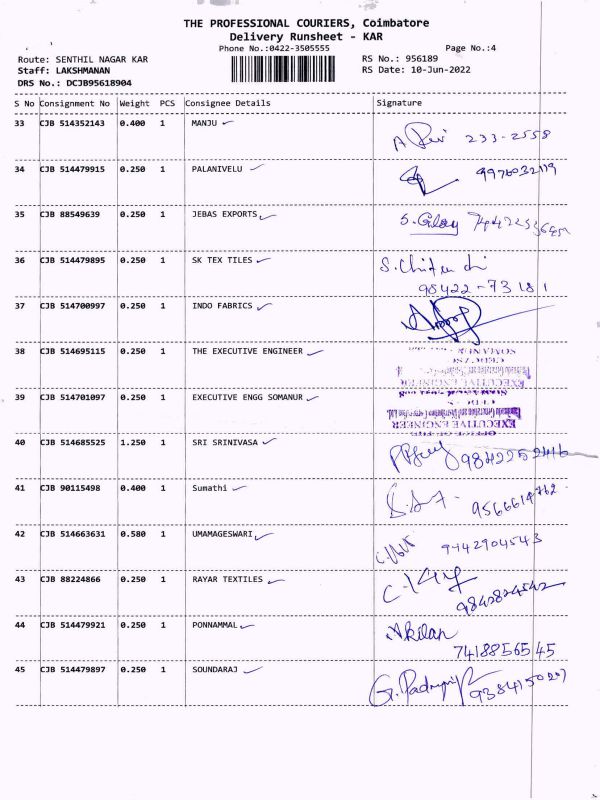 THE PROFESSIONAL COURIERS, Coimbatore
Delivery Runsheet - KAR
Phone No.:0422-3505555
Page No.:4
Route: SENTHIL NAGAR KAR
RS No.: 956189
Staff: LAKSHMANAN
RS Date: 10-Jun-2022
DRS No.: DCJB95618904
S No Consignment No Weight PCS Consignee Details Signature
33 CJB 514352143 0.400 1 MANJU 233-2558
34 CJB 514479915 0.250 1 PALANIVELU
35 CJB 88549639 0.250 1 JEBAS EXPORTS
36 CJB 514479895 0.250 1 SK TEX TILES
98422-73181
37 CJB 514700997 0.250 1 INDO FABRICS
38 CJB 514695115 0.250 1 THE EXECUTIVE ENGINEER
SOMANUR
EXECUTIVE ENGINEER
39 CJB 514701097 0.250 1 EXECUTIVE ENGG SOMANUR
EXECUTIVE ENGINEER
40 CJB 514685525 1.250 1 SRI SRINIVASA 9842252416
41 CJB 90115498 0.400 1 Sumathi
42 CJB 514663631 0.580 1 UMAMAGESWARI
43 CJB 88224866 0.250 1 RAYAR TEXTILES
44 CJB 514479921 0.250 1 PONNAMMAL Akilan
7418856545
45 CJB 514479897 0.250 1 SOUNDARAJ